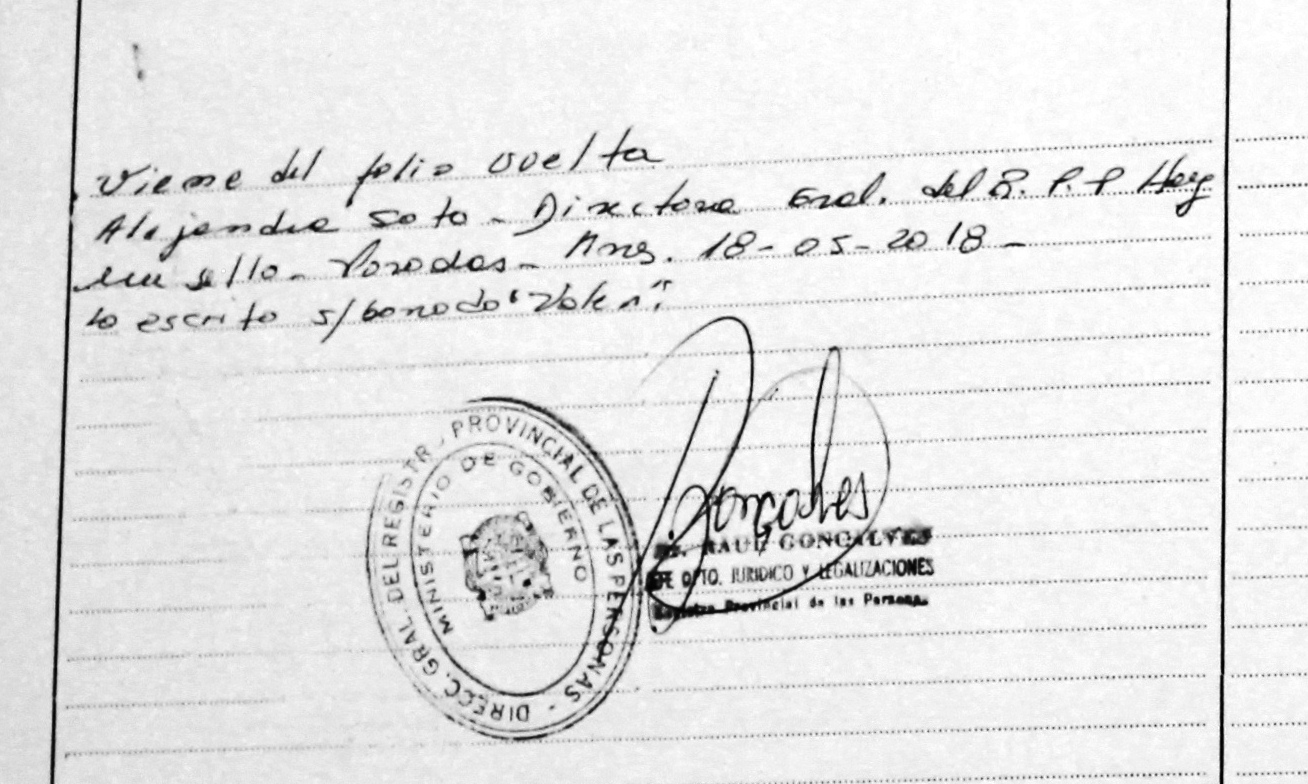 Viene del folio vuelta
Alejandra Soto - Directora Gral. del R. P. P Hay
un sello - Posadas - Mns. 18-05-2018 -
Lo escrito s/borrado "Vale"
DIRECC. GRAL. DEL REGISTR PROVINCIAL DE LAS PERSONAS -
MINISTERIO DE GOBIERNO
Gonçalves
RAUL GONCALVES
DTO. JURIDICO Y LEGALIZACIONES
Registro Provincial de las Personas